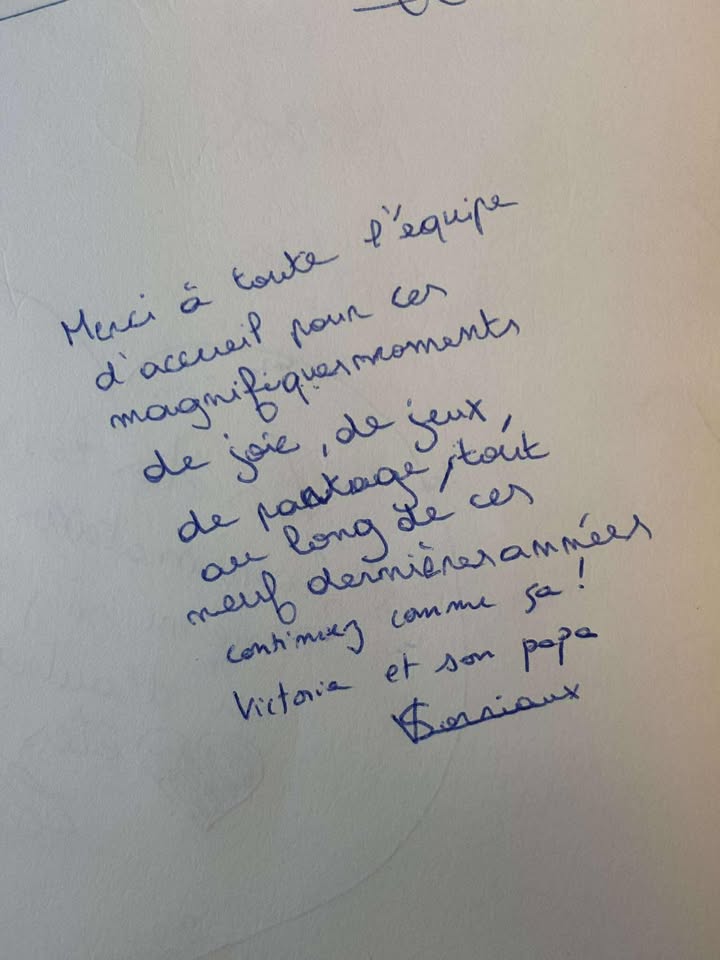 Merci à toute l'équipe
d'accueil pour ces
magnifiques moments
de joie, de jeux,
de partage, tout
au long de ces
neuf dernières années
continuez comme ça !
Victoria et son papa